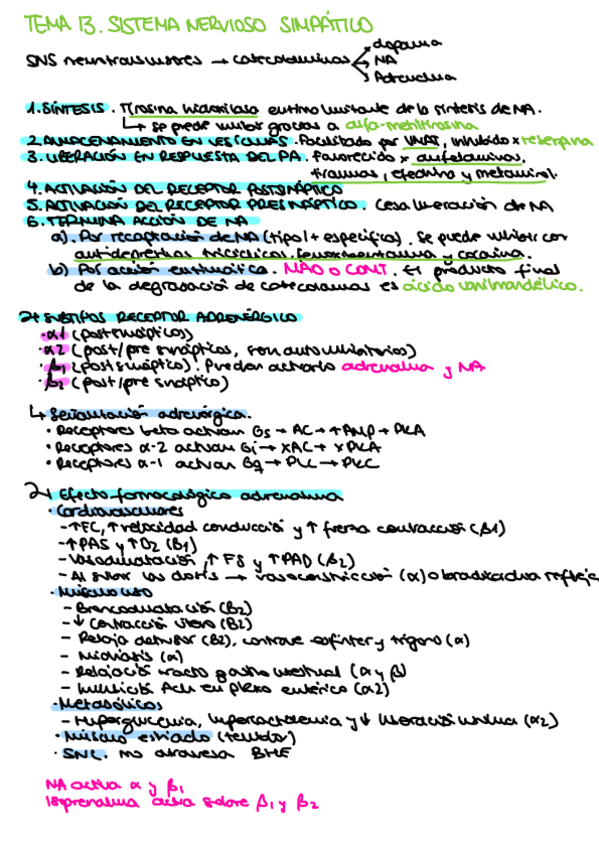 TEMA 13. SISTEMA NERVIOSO SIMPÁTICO
SNS neurotransmisores → catecolaminas
dopamina
NA
Adrenalina
1. SÍNTESIS. Tirosina hidroxilasa enzima limitante de la síntesis de NA.
↳ se puede inhibir gracias a alfa-metiltirosina
2. ALMACENAMIENTO EN VESÍCULAS. Facilitado por VMAT, inhibido x reserpina
3. LIBERACIÓN EN RESPUESTA DEL PA. Favorecido x anfetaminas,
tiramina, efedrina y metaminol.
4. ACTIVACIÓN DEL RECEPTOR POSTSINÁPTICO
5. ACTIVACIÓN DEL RECEPTOR PRESINÁPTICO. Cesa liberación de NA
6. TERMINA ACCIÓN DE NA
a). Por recaptación de NA (tipo 1 + específica). Se puede inhibir con
antidepresivos tricíclicos, y cocaína.
b) Por acción enzimática. MAO o COMT. El producto final
de la degradación de catecolaminas es ácido vanilmandélico.
SUBTIPOS RECEPTOR ADRENÉRGICO
· α1 (postsinápticos)
· α2 (post/pre sinápticos, son autoinhibitorios)
· β1 (postsináptico). Pueden activarlo adrenalina y NA
· β2 (post/pre sináptico)
↳ Señalización adrenérgica.
· Receptores beta activan Gs → AC → ↑AMP → PKA
· Receptores α-2 activan Gi → XAC → XPKA
· Receptores α-1 activan Gq → PLC → PKC
Efecto farmacológico adrenalina
· Cardiovasculares
- ↑FC, ↑velocidad conducción y ↑ fuerza contracción (β1)
- ↑PAS y ↑O2 (β1)
- Vasodilatación, ↑ FS y ↑PAD (β2)
- Al subir las dosis → vasoconstricción (α) o bradicardia refleja
· Músculo liso
- Broncodilatación (β2)
- ↓ Contracción útero (β2)
- Relaja detrusor (β2), contrae esfínter y trígono (α)
- Midriasis (α)
- Relajación tracto gastro intestinal (α y β)
- Inhibición Ach en plexo entérico (α2)
· Metabólicos
- Hiperglucemia, hiperlactatemia y ↓ liberación insulina (α2)
· Músculo estriado (temblor)
· SNC. no atraviesa BHE
NA activa α y β1
Isoprenalina actúa sobre β1 y β2